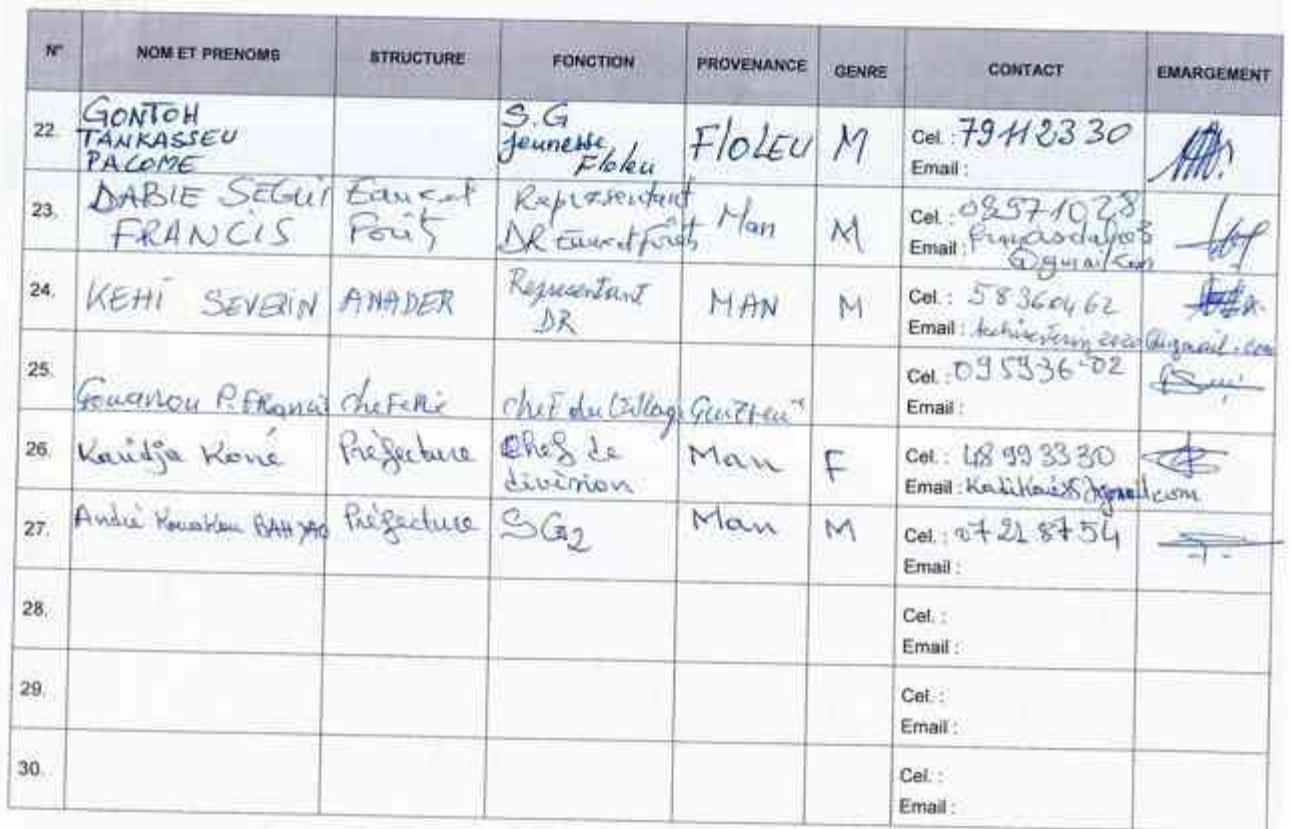 N° NOM ET PRENOMS STRUCTURE FONCTION PROVENANCE GENRE CONTACT EMARGEMENT
22. GONTOH TANKASSEU PALOME S.G Jeunesse Floleu FloLEU M Cel. : 79112330
Email :
23. DABIE SEGUI FRANCIS Eaux et Forêts Représentant DR Eaux et forêts Man M Cel. :
Email : @gmail.com
24. KEHI SEVERIN ANADER Representant DR MAN M Cel. : 58360462
Email : @gmail.com
25. P. Francis chefferie chef du Village Cel. : 095936-02
Email :
26. Karidja Koné Préfecture Chef de division Man F Cel. : 48 99 33 30
Email :
27. André Kouakou BAH YAO Préfecture SG2 Man M Cel. : 07 21 87 54
Email :
28. Cel. :
Email :
29. Cel. :
Email :
30. Cel. :
Email :